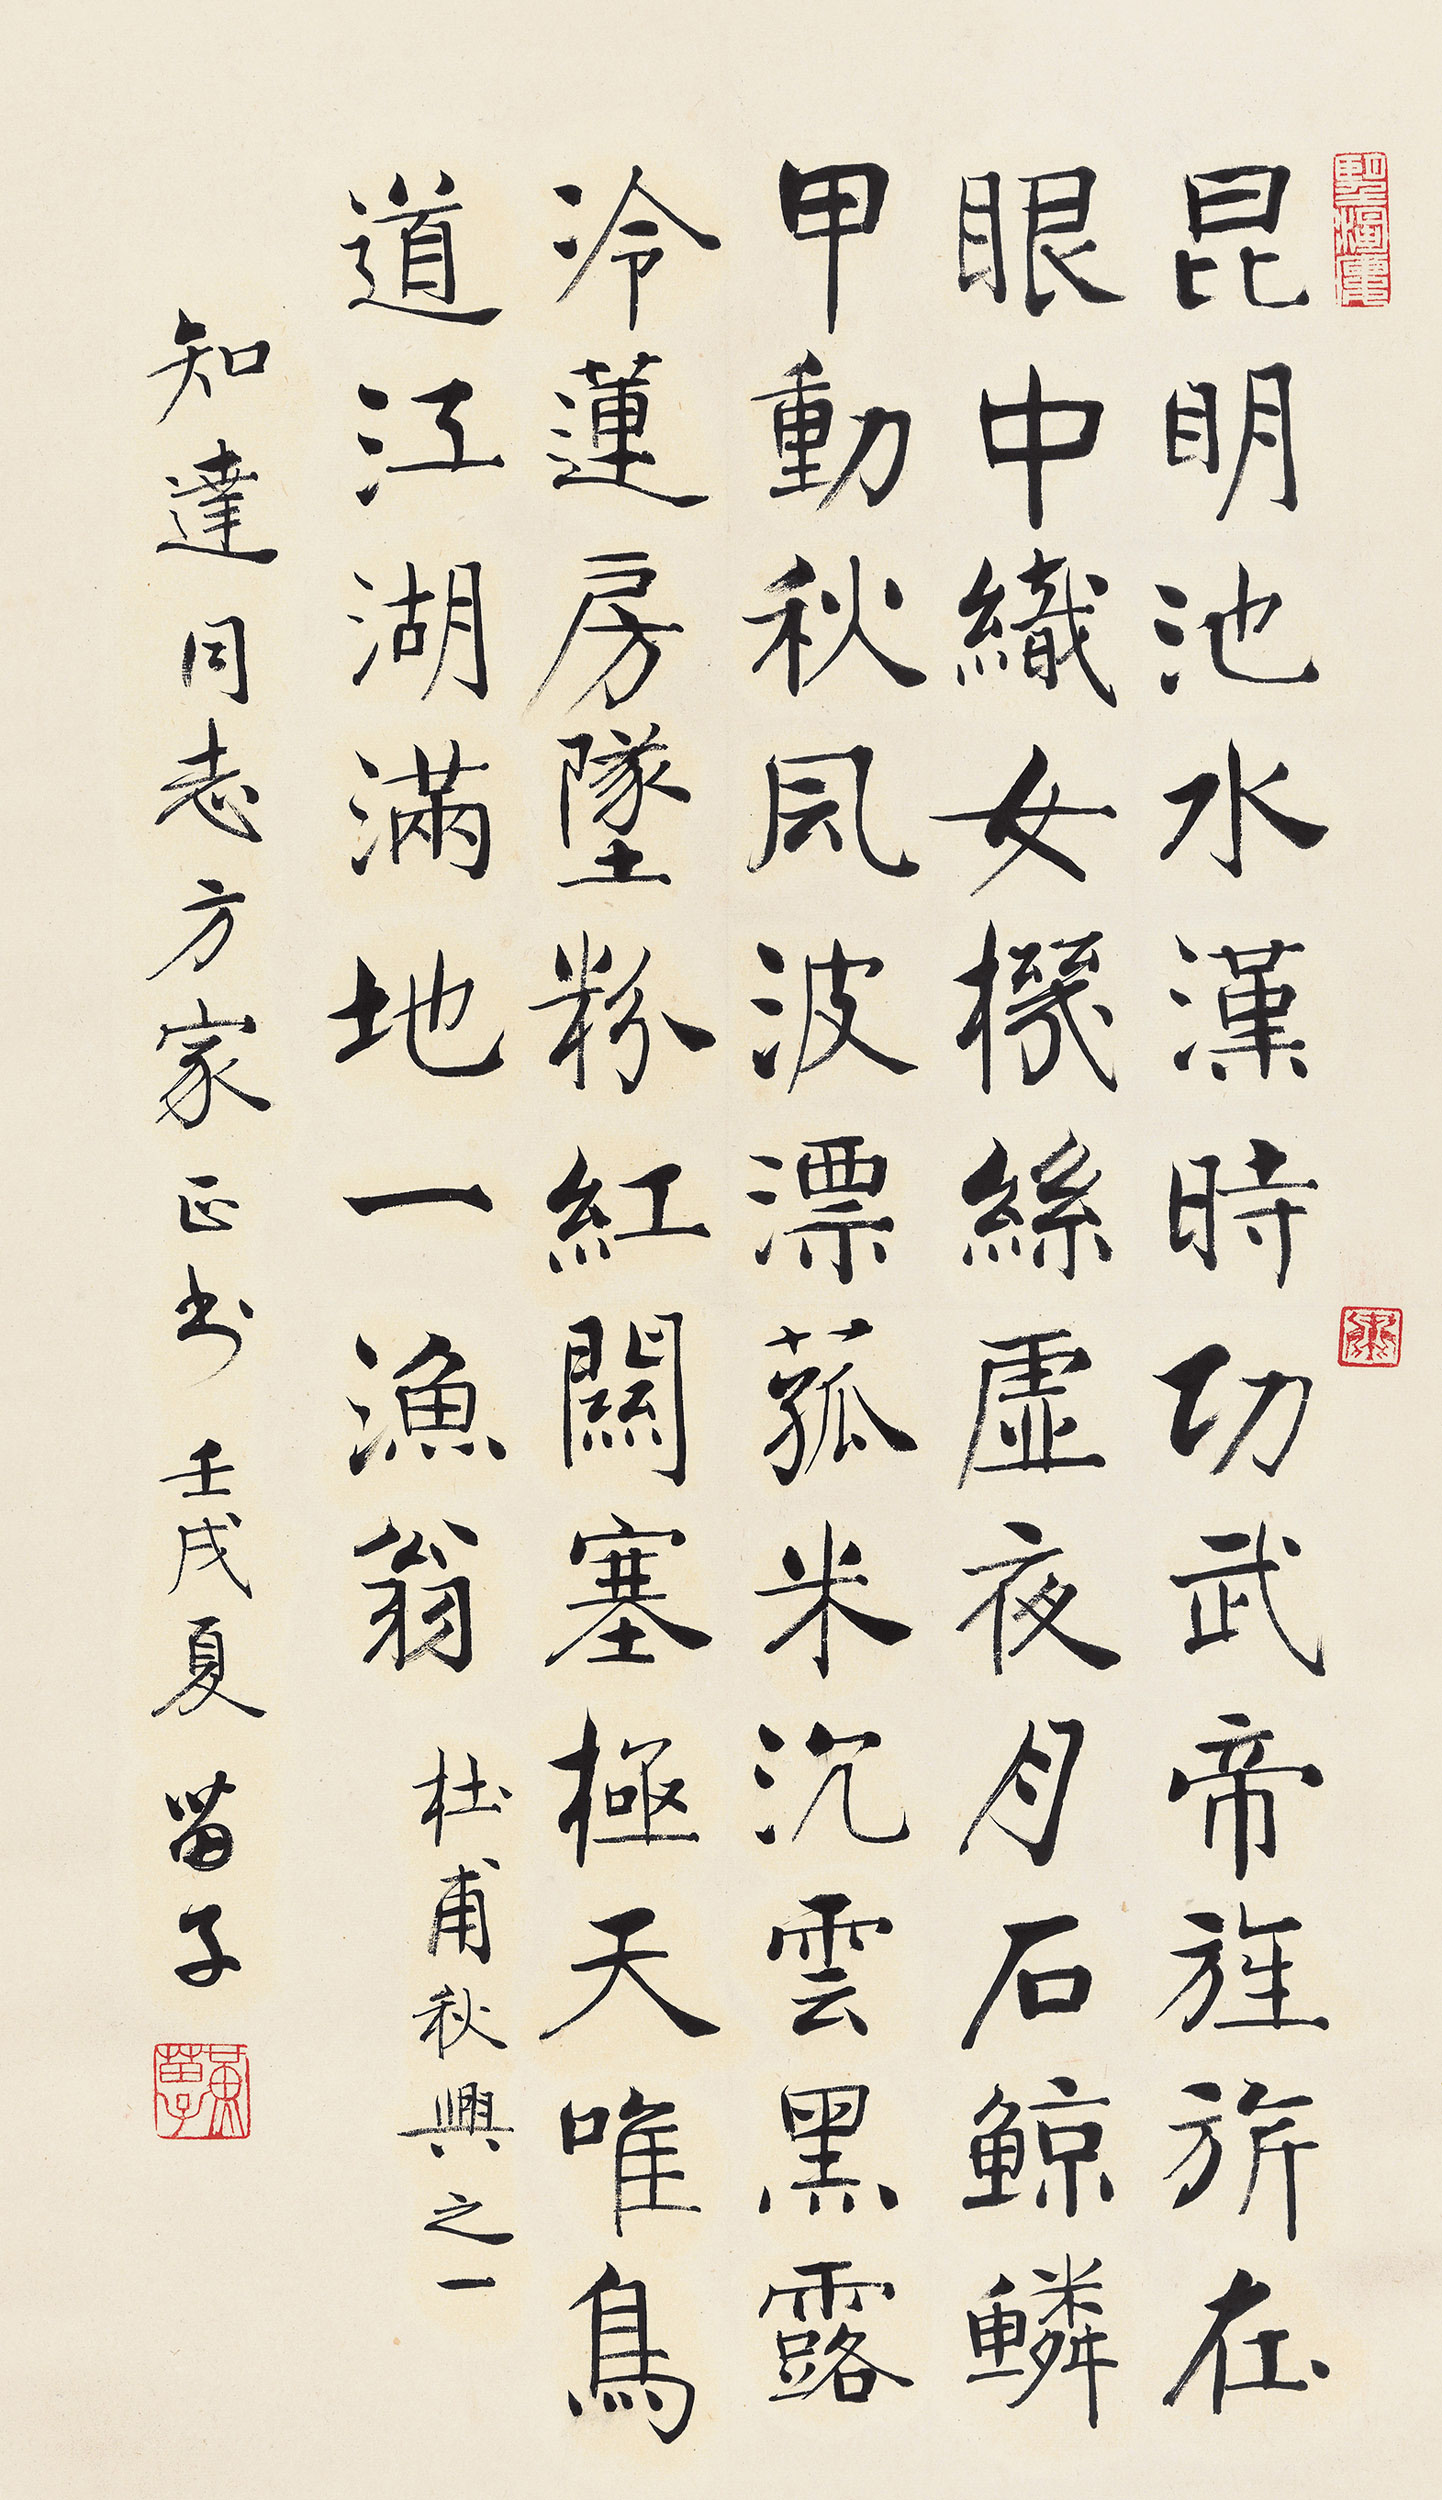 昆明池水漢時功武帝旌旂在
眼中織女機絲虛夜月石鯨鱗
甲動秋風波漂菰米沉雲黑露
泠蓮房墜粉紅關塞極天唯鳥
道江湖滿地一漁翁
杜甫秋興之一
知達同志方家正书
壬戌夏苗子
黃苗子